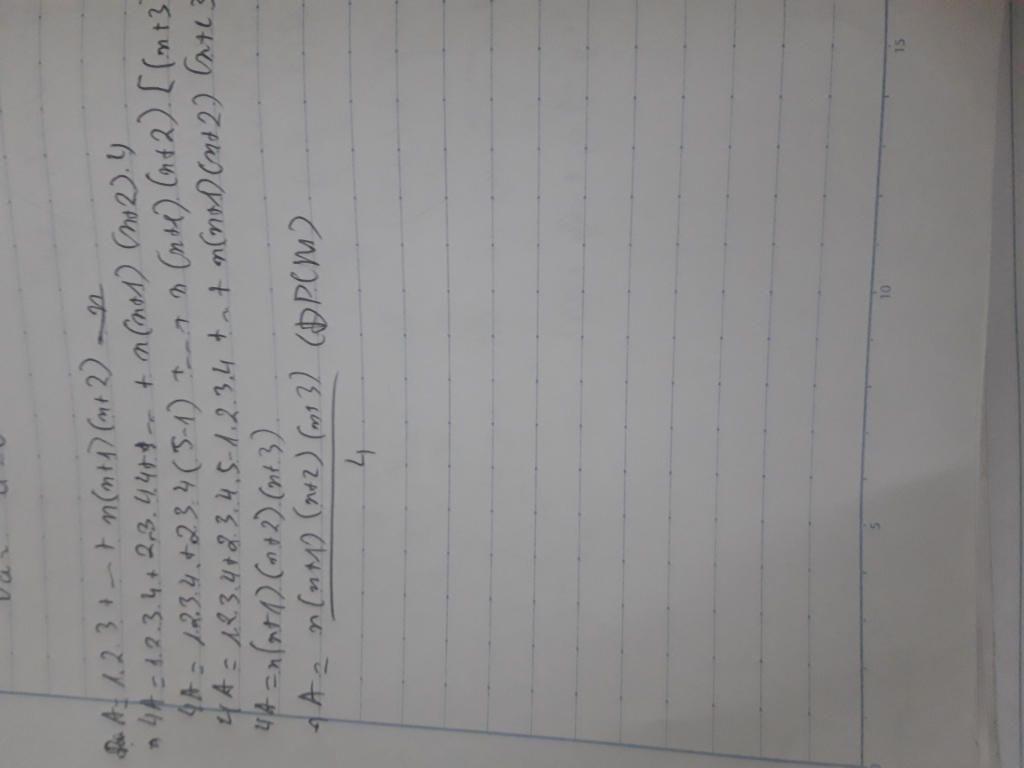 A = 1.2.3 + ... + n(n+1)(n+2)
4A = 1.2.3.4 + 2.3.4.4 + ... + n(n+1)(n+2).4
4A = 1.2.3.4 + 2.3.4(5-1) + ... n(n+1).(n+2)[(n+3
4A = 1.2.3.4+2.3.4.5-1.2.3.4 + ... + n(n+1)(n+2)(n+3
4A = n(n+1).(n+2).(n+3)
A = n(n+1)(n+2)(n+3) (ĐPCM)
4
5
10
15